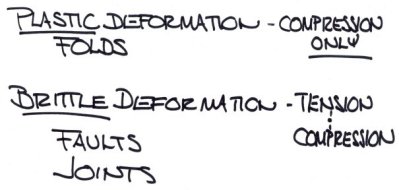 PLASTIC DEFORMATION - COMPRESSION
FOLDS ONLY
BRITTLE DEFORMATION - TENSION
FAULTS COMPRESSION
JOINTS